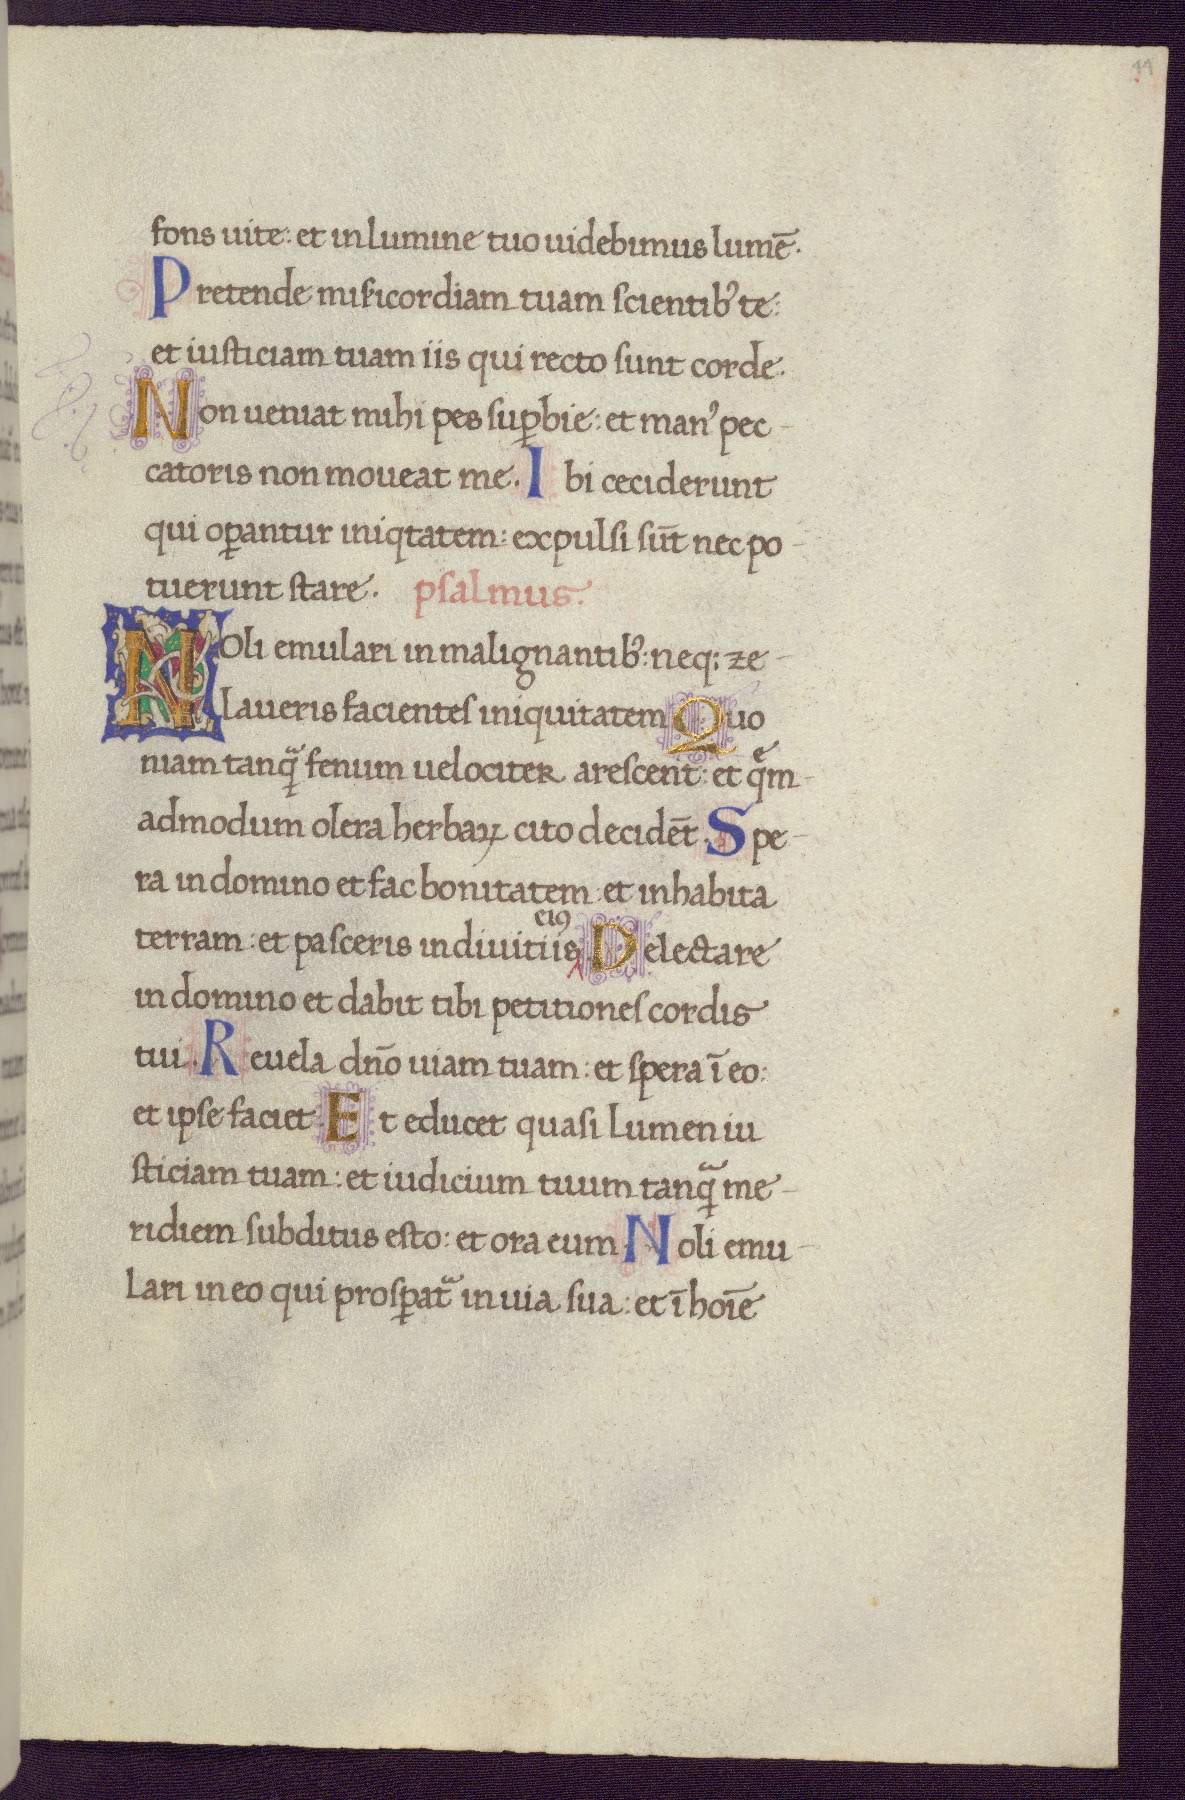 44
fons uite: et in lumine tuo uidebimus lumē.
Pretende misericordiam tuam scientib' te:
et iusticiam tuam iis qui recto sunt corde.
Non ueniat mihi pes suꝑbie: et man' pec-
catoris non moueat me. Ibi ceciderunt
qui oꝑantur iniqtatem: expulsi sūt nec po-
tuerunt stare. psalmus.
NOli emulari in malignantib': neq; ze-
laueris facientes iniquitatem Quo
niam tanqᷓ fenum uelociter arescent: et qͤm-
admodum olera herbaꝝ cito decidēt. Spe-
ra in domino et fac bonitatem: et inhabita
terram: et pasceris in diuitiis eiꝯ. Delectare
in domino et dabit tibi petitiones cordis
tui. Reuela dn̄o uiam tuam: et spera ī eo:
et ipse faciet Et educet quasi lumen iu
sticiam tuam: et iudicium tuum tanqᷓ me-
ridiem subditus esto: et ora eum. Noli emu-
lari in eo qui prosꝑatᷓ in uia sua: et ī hoīe